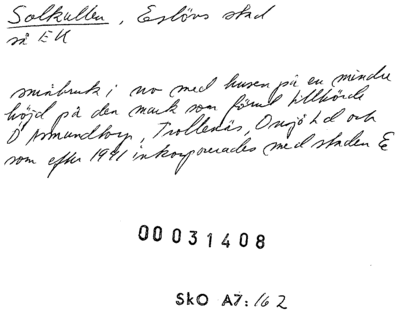 Solkullen, Eslövs stad
så EK
småbruk i no med husen på en mindre
höjd på den mark som förut tillhörde
Ö Asmundtorp, Trollenäs, Onsjö hd och
som efter 1941 inkorporerades med staden E
00031408
SkO A7:162